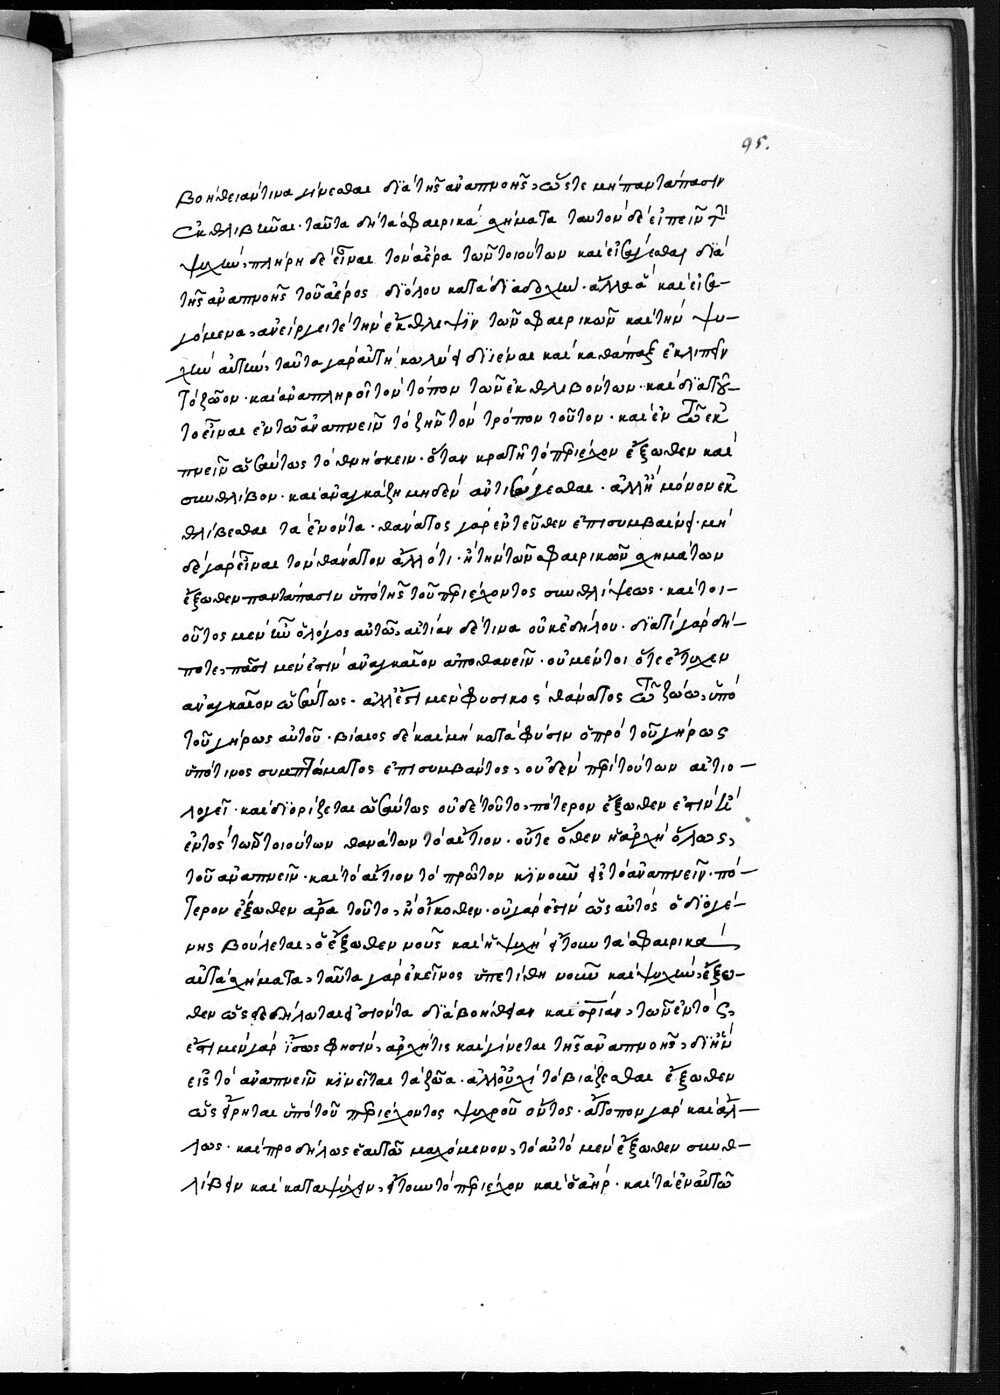 95.
βοήθειαν τινα γίνεσθαι διὰ τῆς ἀναπνοῆς, ὥστε μὴ παντάπασιν
ἐκθλιβῆναι. ταῦτα δὴ τὰ σφαιρικὰ σχήματα ταυτὸν δὲ εἰπεῖν τὴν
ψυχὴν, πλήρη δὲ εἶναι τὸν ἀέρα τῶν τοιούτων καὶ εἰσάγεσθαι διὰ
τῆς ἀναπνοῆς τοῦ ἀέρος διόλου κατὰ διαδοχὴν. ἄλλα ἃ καὶ εἰσα-
γόμενα, ἀνείργει τε τὴν ἔκθλιψιν τῶν σφαιρικῶν καὶ τὴν ψυ-
χὴν αὐτὴν, ταῦτα γὰρ αὐτὴ κωλύει διϊέναι καὶ καθάπαξ ἐκλιπεῖν
τὸ ζῶον. καὶ ἀναπληροῖ τὸν τόπον τῶν ἐκθλιβόντων. καὶ διατοῦ-
το εἶναι ἐν τῶ ἀναπνεῖν τὸ ζῆν τὸν τρόπον τοῦτον. καὶ ἐν τῶ ἐκ
πνεῖν ὡσαύτως τὸ θνήσκειν. ὅταν κρατῆ τὸ περιέχον ἔξωθεν καὶ
συνθλίβον. καὶ ἀναγκάζη μηδὲν ἀντεισάγεσθαι. ἀλλ' ἢ μόνον ἐκ
θλίβεσθαι τὰ ἐνόντα. θάνατος γὰρ ἐντεῦθεν ἐπισυμβαίνει. μὴ
δὲ γὰρ εἶναι τὸν θάνατον ἄλλό τι. ἢ τὴν τῶν σφαιρικῶν σχημάτων
ἔξωθεν παντάπασιν ὑπὸ τῆς τοῦ περιέχοντος συνθλίψεως. καίτοι
οὗτος μὲν οὖν ὁ λόγος αὐτῶ, αἰτίαν δέ τινα οὐκ ἐδήλου. διατί γὰρ δή-
ποτε, πᾶσι μὲν ἐστὶν ἀναγκαῖον ἀποθανεῖν. οὐ μέντοι ὅτε ἔτυχεν
ἀναγκαῖον ὡσαύτως. ἀλλ' ἔστι μὲν φυσικὸς θάνατος τῶ ζώω, ὑπὸ
τοῦ γήρως αὐτοῦ. βίαιος δὲ καὶ μὴ κατὰ φύσιν ὁ πρὸ τοῦ γήρως
ὑπό τινος συμπτώματος ἐπισυμβάντος, οὐδὲν περὶ τούτων αἰτιο-
λογεῖ. καὶ διορίζεται ὡσαύτως οὐδὲ τοῦτο, πότερον ἔξωθεν ἐστὶν ἢ
ἐντὸς τῶν τοιούτων θανάτων τὸ αἴτιον. οὔτε ὅθεν ἡ ἀρχὴ ὅλως,
τοῦ ἀναπνεῖν. καὶ τὸ αἴτιον τὸ πρῶτον κινοῦν εἰς τὸ ἀναπνεῖν. πό-
τερον ἔξωθεν ἄρα τοῦτο, ἢ οἴκοθεν. οὐ γάρ ἐστιν ὡς αὐτὸς ὁ διογέ-
νης βούλεται, ὁ ἔξωθεν νοῦς καὶ ἡ ψυχὴ ἤτουν τὰ σφαιρικὰ
αὐτὰ σχήματα, ταῦτα γὰρ ἐκεῖνος ὑπετίθη νοῦν καὶ ψυχὴν, ἔξω-
θεν ὡς δεδήλωται εἰσιόντα διὰ βοήθειαν καὶ σωτηρίαν, τῶν ἐντὸς,
ἔστι μὲν γὰρ ἴσως φησὶν, ἀρχή τις καὶ γίνεται τῆς ἀναπνοῆς, δι' ἣν
εἰς τὸ ἀναπνεῖν κινεῖται τὰ ζῶα. ἀλλ' οὐχὶ τὸ βιάζεσθαι ἔξωθεν
ὡς εἴρηται ὑπὸ τοῦ περιέχοντος ψυχροῦ ὄντος. ἄτοπον γὰρ καὶ ἄλ-
λως. καὶ προδήλως ἑαυτῶ μαχόμενον, τὸ αὐτὸ μὲν ἔξωθεν συνθ-
λίβειν καὶ καταψύχειν, ἤτουν τὸ περιέχον καὶ ὁ ἀὴρ. καὶ τὰ ἐν αὐτῶ